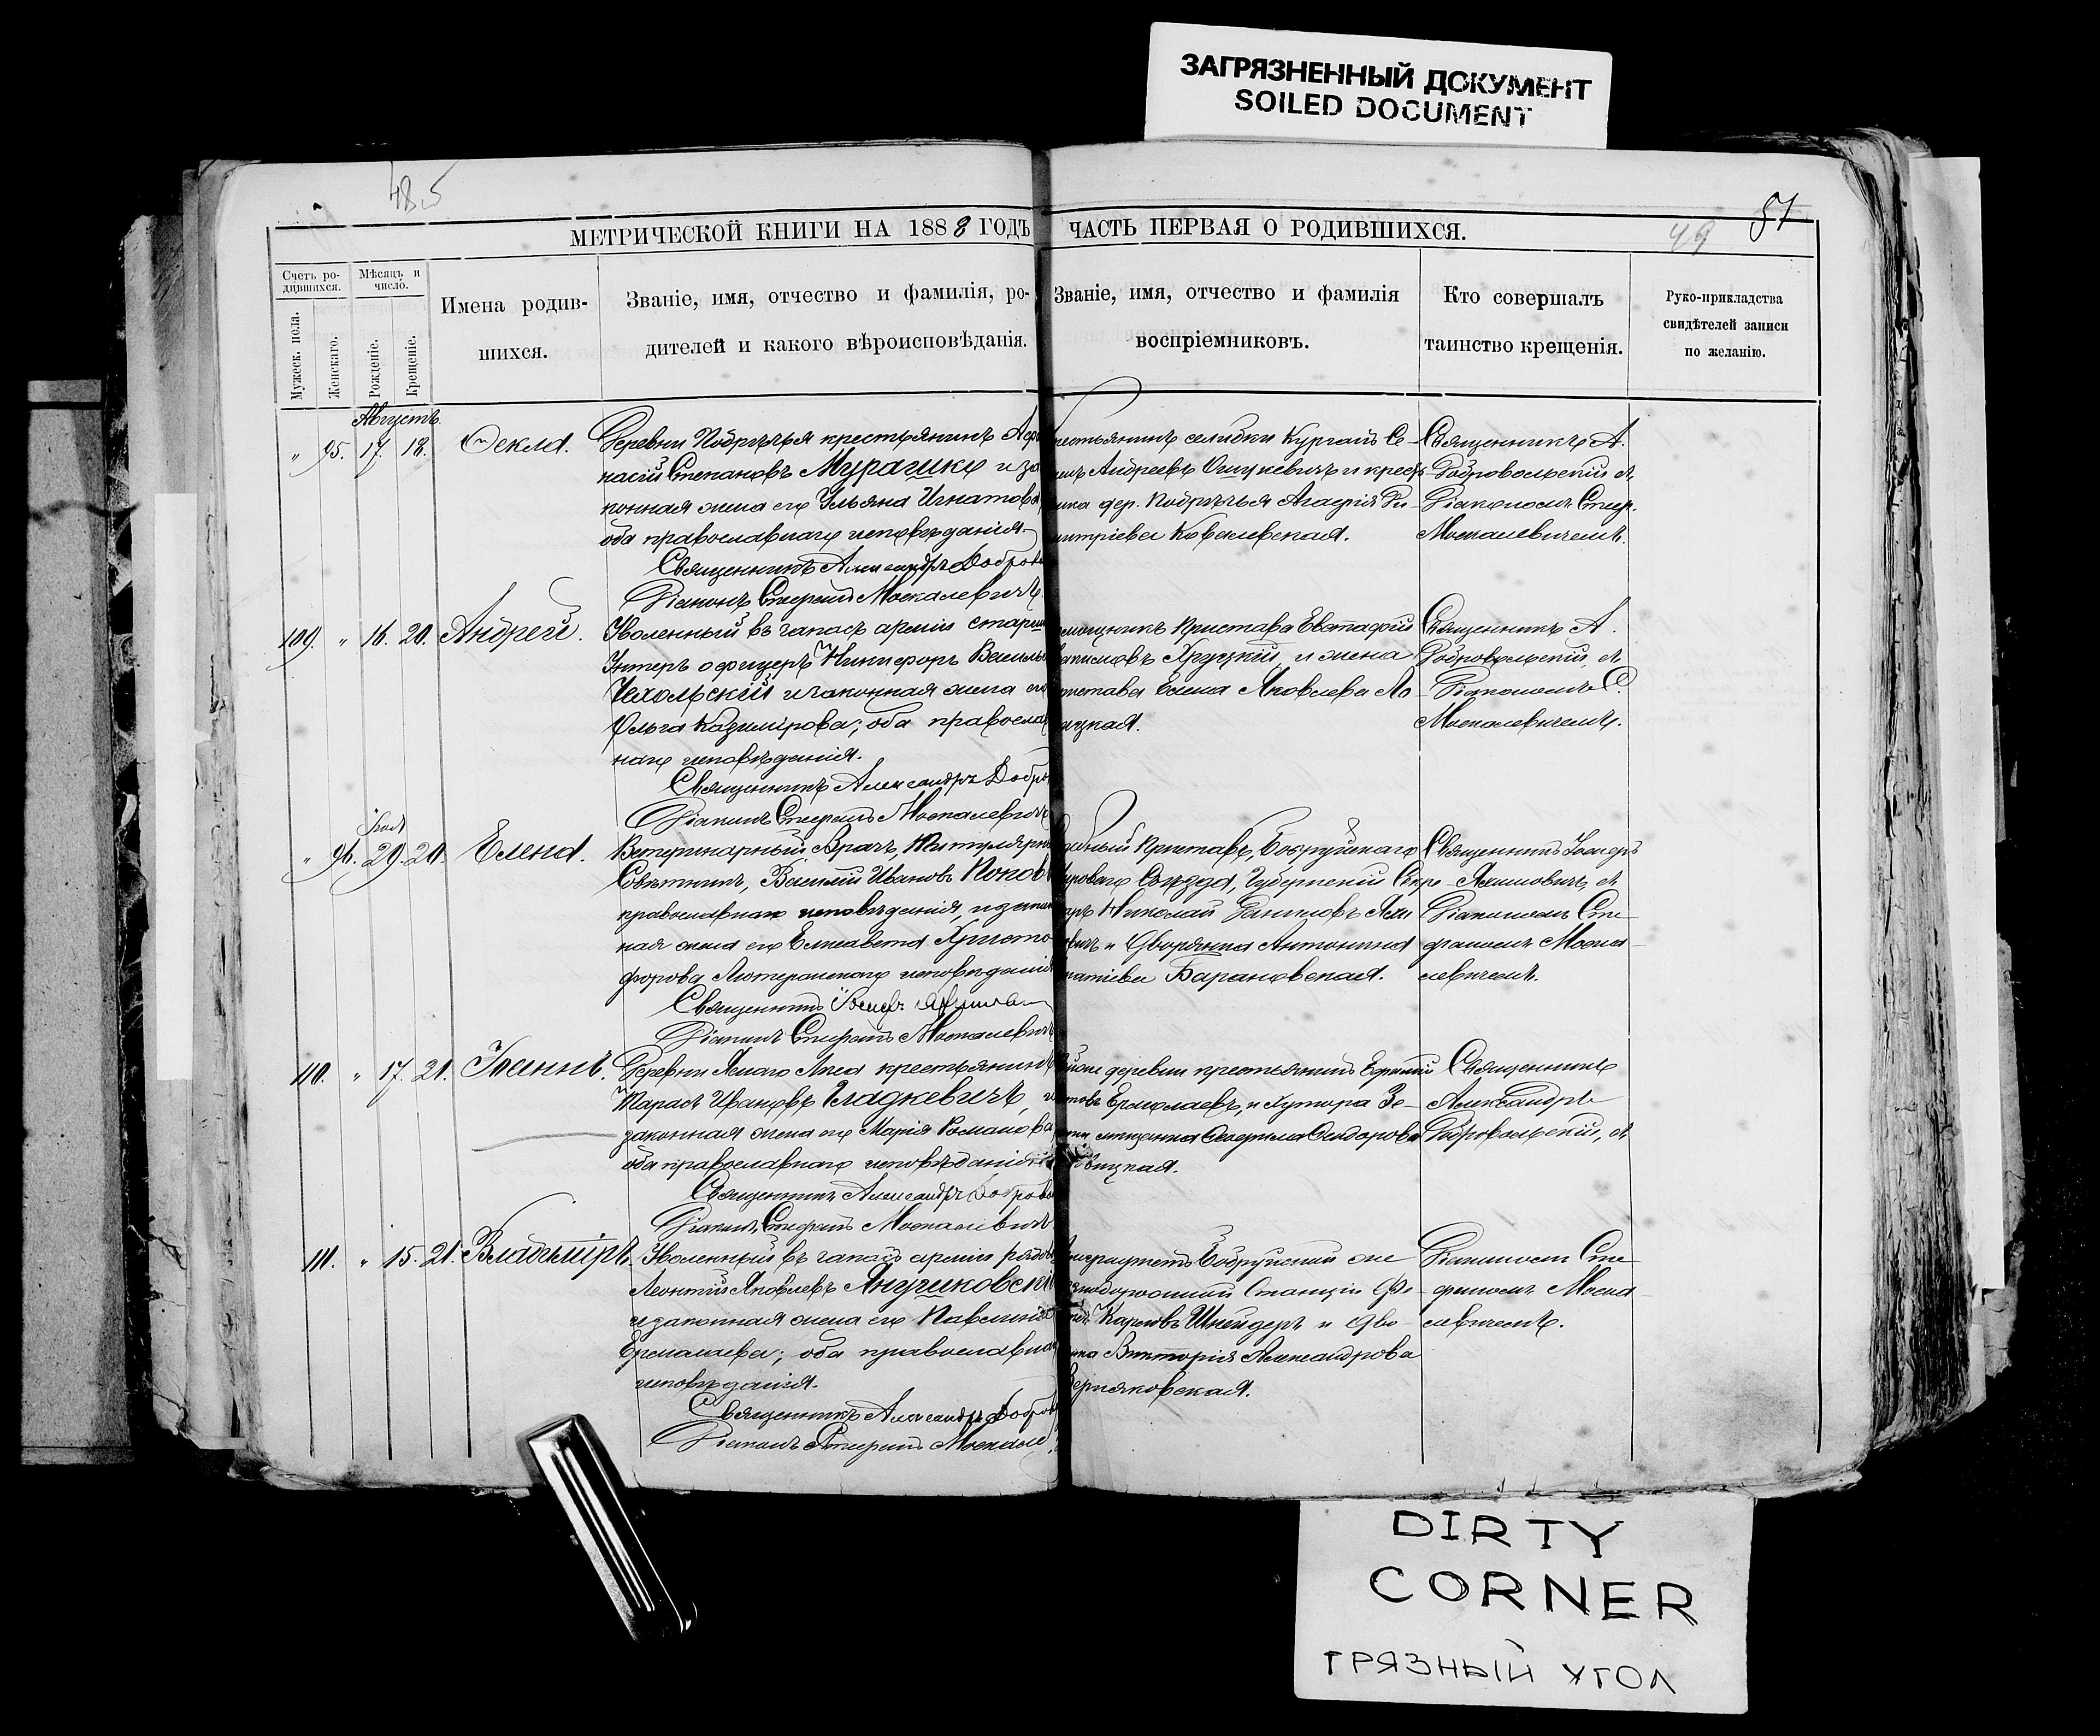 ЗАГРЯЗНЕННЫЙ ДОКУМЕНТ
SOILED DOCUMENT
485
49
51
МЕТРИЧЕСКОЙ КНИГИ НА 1888 ГОДЪ ЧАСТЬ ПЕРВАЯ О РОДИВШИХСЯ.
Счетъ ро-
дившихся.
Мужеск. пола.
Женскаго.
Мѣсяцъ и
число.
Рожденіе.
Крещеніе.
Имена родив-
шихся.
Званіе, имя, отчество и фамилія, ро-
дителей и какого вѣроисповѣданія.
Званіе, имя, отчество и фамилія
воспріемниковъ.
Кто совершалъ
таинство крещенія.
Руко-прикладства
свидѣтелей записи
по желанію.
Августъ
" 95. 17. 18. Ѳекла.
Деревни Побрѣчья крестьянинъ Аѳа
насій Степановъ Мурашко и за
конная жена его Ульяна Игнатова
оба православнаго исповѣданія.
Священникъ Александръ Добров
Діаконъ Стефанъ Москалевичъ.
естьянинъ селибки Курганъ Се-
Андреевъ и крест
дер. Побрѣчья Агафія Ди-
митріева Ковалевская.
Священникъ А.
Добровольскій съ
Діакономъ Стеф.
Москалевичемъ.
109. " 16. 20. Андрей.
Уволенный въ запасъ арміи старш
Унтеръ офицеръ Никифоръ Василь
Чехольскій и законная жена его
Ольга Казимірова; оба православ
наго исповѣданія.
Священникъ Александръ Добро
Діаконъ Стефанъ Москалевичъ
мощникъ Пристава Евстафій
Хруцкій и жена
пристава Елена Яковлева Ло
ицкая.
Священникъ А.
Добровольскій, съ
Діакономъ С.
Москалевичемъ.
Іюля
" 96. 29. 20. Елена.
Ветеринарный Врачъ, Титулярн
Совѣтникъ, Василій Ивановъ Попов
православнаго исповѣданія, и закон
ная жена его Елисавета Христо
форова Лютеранскаго исповѣданія
Священникъ Іосифъ
Діаконъ Стефанъ Москалевичъ
дебный Приставъ, Бобруйскаго
Мироваго Съѣзда, Губернскій Секре
Николай Даниловъ Яки
и Дворянка Антонина
Барановская.
Священникъ Іосифъ
съ
Діакономъ Сте
фаномъ Моска
левичемъ.
110. " 17. 21. Іоаннъ.
Деревни Яснаго Лѣса крестьянинъ
Тарасъ Ивановъ Гладкевичъ, и
законная жена его Марія Романова
оба православнаго исповѣданія
Священникъ Александръ Добров
Діаконъ Стефанъ Москалевичъ
деревни крестьянинъ Ефимій
Ермолаевъ, и Хутора Зе-
мѣщанка Сидорова
вицкая.
Священникъ
Александръ
Добровольскій, съ
111. " 15. 21. Владиміръ
Уволенный въ запасъ арміи рядов
Леонтій Яковлевъ Янчиковскі
и законная жена его Павлина
Ермолаева; оба православнаг
исповѣданія.
Священникъ Александръ Добров
Діаконъ Стефанъ Москале
Бобруйской же
лезнодорожной Станціи Фе-
Карловъ Шнейдеръ и Дво-
Викторія Александрова
Вержековская.
Діакономъ Сте
фаномъ Моска
левичемъ.
DIRTY
CORNER
ГРЯЗНЫЙ УГОЛ